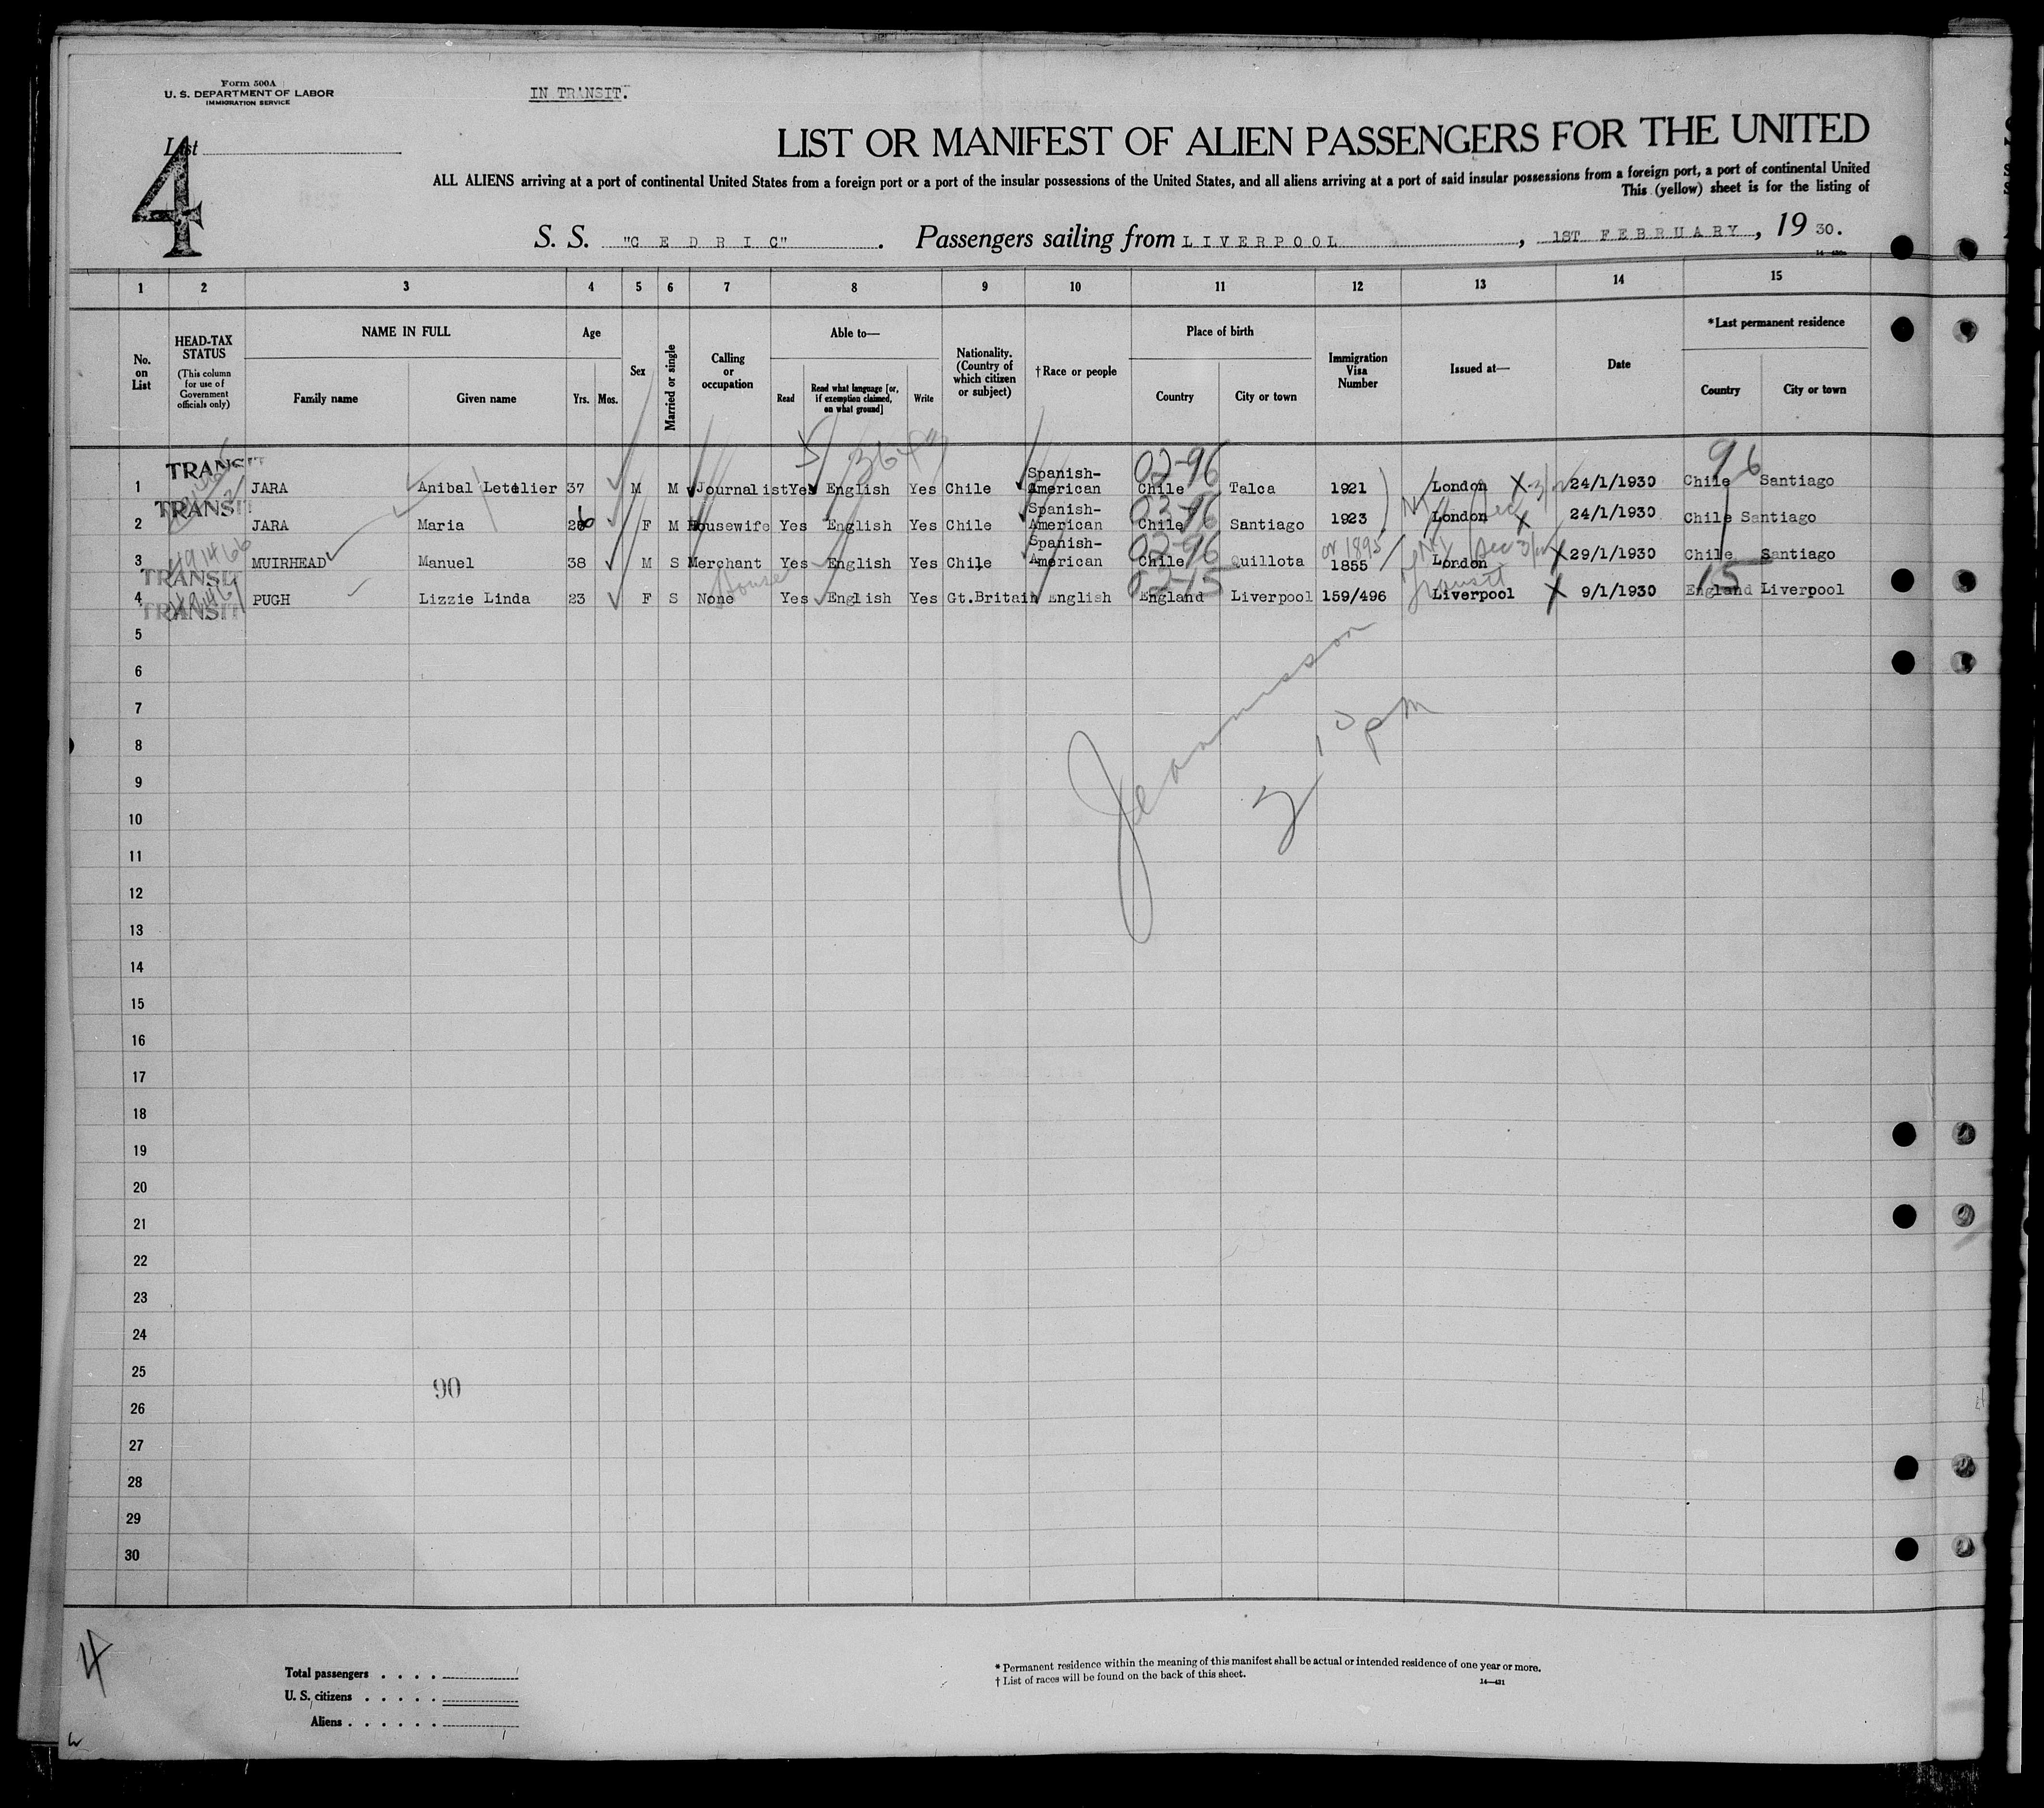 Form 500A
U. S. DEPARTMENT OF LABOR
IMMIGRATION SERVICE
IN TRANSIT.
List
4
LIST OR MANIFEST OF ALIEN PASSENGERS FOR THE UNITED
ALL ALIENS arriving at a port of continental United States from a foreign port or a port of the insular possessions of the United States, and all aliens arriving at a port of said insular possessions from a foreign port, a port of continental United
This (yellow) sheet is for the listing of
S. S. "CEDRIC". Passengers sailing from LIVERPOOL, 1ST FEBRUARY, 1930.
1 2 3 4 5 6 7 8 9 10 11 12 13 14 15
No. on List
HEAD-TAX STATUS
(This column for use of Government officials only)
NAME IN FULL
Family name Given name
Age
Yrs. Mos.
Sex
Married or single
Calling or occupation
Able to—
Read Read what language [or, if exemption claimed, on what ground] Write
Nationality. (Country of which citizen or subject)
†Race or people
Place of birth
Country City or town
Immigration Visa Number
Issued at—
Date
*Last permanent residence
Country City or town
02-96 96
1 TRANSIT JARA Anibal Letelier 37 M M Journalist Yes English Yes Chile Spanish-American Chile Talca 1921 London X 24/1/1930 Chile Santiago
2 TRANSIT JARA Maria 26 F M Housewife Yes English Yes Chile Spanish-American 02-96 Chile Santiago 1923 London X 24/1/1930 Chile Santiago
3 TRANSIT MUIRHEAD Manuel 38 M S Merchant Yes English Yes Chile Spanish-American 02-96 Chile Quillota or 1895 1855 London X 29/1/1930 Chile Santiago
4 TRANSIT PUGH Lizzie Linda 23 F S None House Yes English Yes Gt.Britain English 02-15 England Liverpool 159/496 Transit Liverpool X 9/1/1930 15 England Liverpool
5
6
7
8
9
10
11
12
13
14
15
16
17
18
19
20
21
22
23
24
25
90
26
27
28
29
30
4
Total passengers . . . .
U. S. citizens . . . . .
Aliens . . . . . .
* Permanent residence within the meaning of this manifest shall be actual or intended residence of one year or more.
† List of races will be found on the back of this sheet.
14—431